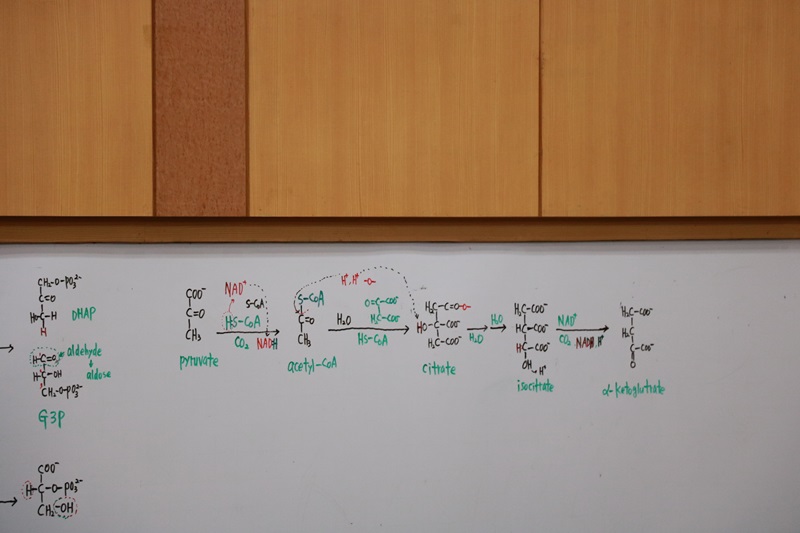 CH₂-O-PO₃²⁻
C=O
HO-C-H
H
DHAP
H-C=O
aldehyde
aldose
H-C-OH
CH₂-O-PO₃²⁻
G3P
COO⁻
H-C-O-PO₃²⁻
CH₂-OH
COO⁻
C=O
CH₃
pyruvate
NAD⁺
S-CoA
HS-CoA
CO₂ NADH
S-CoA
C=O
CH₃
acetyl-CoA
H⁺, H⁺ -O-
H₂O
O=C-COO⁻
H₂C-COO⁻
HS-CoA
H₂C-C=O-O-
HO-C-COO⁻
H₂C-COO⁻
citrate
H₂O
H₂O
H₂C-COO⁻
HC-COO⁻
HC-COO⁻
OH H⁺
isocitrate
NAD⁺
CO₂ NADH H⁺
H₂C-COO⁻
H₂C
C-COO⁻
O
α-ketoglutrate